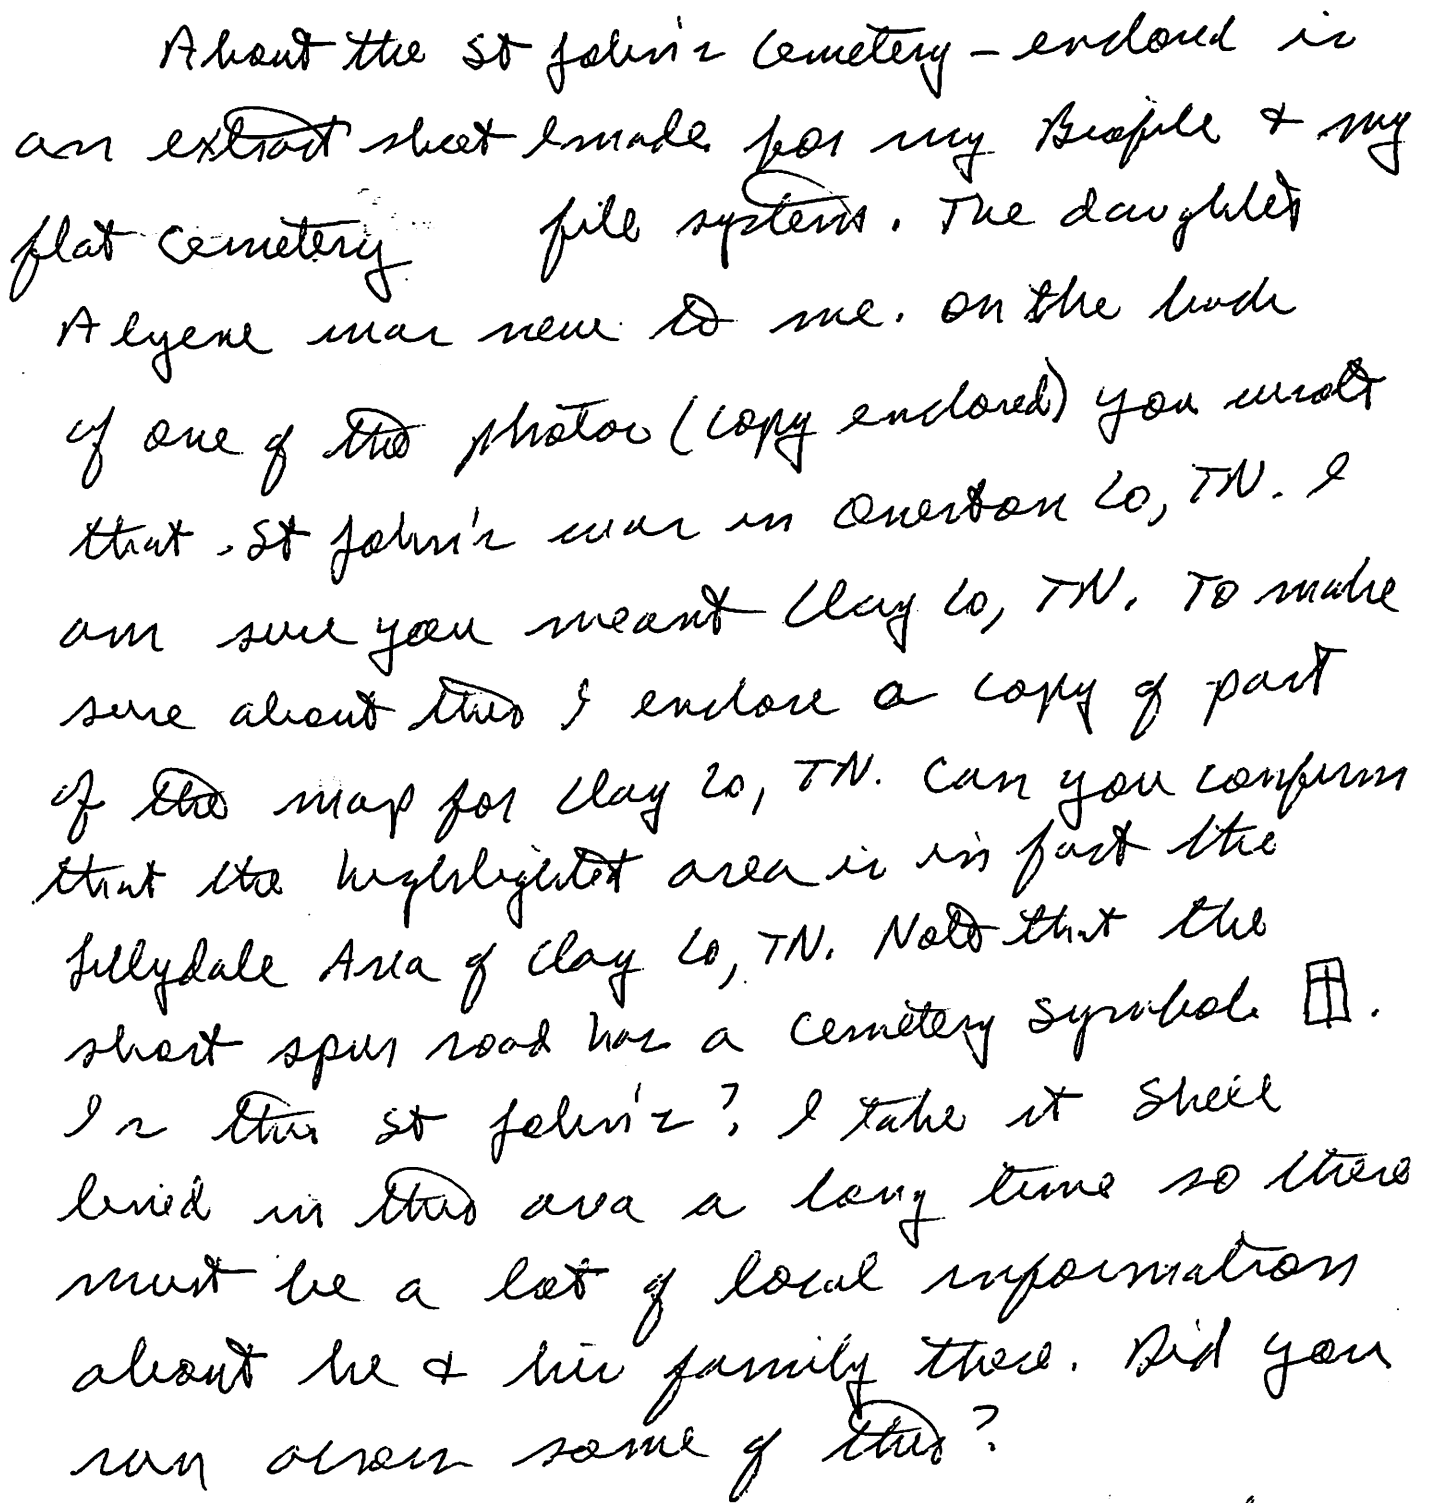 About the St John's Cemetery – enclosed is
an extract sheet I made for my Biofile & my
flat cemetery file system. The daughter
Alyene was new to me. On the back
of one of the photos (copy enclosed) you wrote
that St John's was in Overton Co, TN. I
am sure you meant Clay Co, TN. To make
sure about this I enclose a copy of part
of the map for Clay Co, TN. Can you confirm
that the highlighted area is in fact the
Lillydale Area of Clay Co, TN. Note that the
short spur road has a cemetery symbol.
Is this St John's? I take it
lived in this area a long time so there
must be a lot of local information
about he & his family there. Did you
run across some of this?